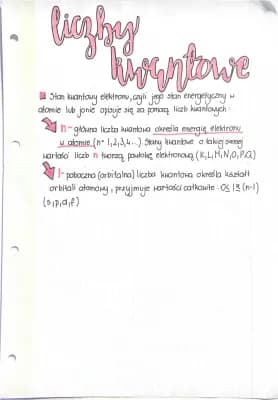 liczby
kwantowe
Stan kwantowy elektronu, czyli jego stan energetyczny w
atomie lub jonie opisuje się za pomocą liczb kwantowych:
n - główna liczba kwantowa określa energię elektronu
w atomie (n = 1,2,3,4...). Stany kwantowe o takiej samej
wartości liczb n tworzą powłokę elektronową (K,L,M,N,O,P,Q)
l - poboczna (orbitalna) liczba kwantowa określa kształt
orbitali atomowy, przyjmuje wartości całkowite: 0≤ l ≤ (n-1)
(s,p,d,f)